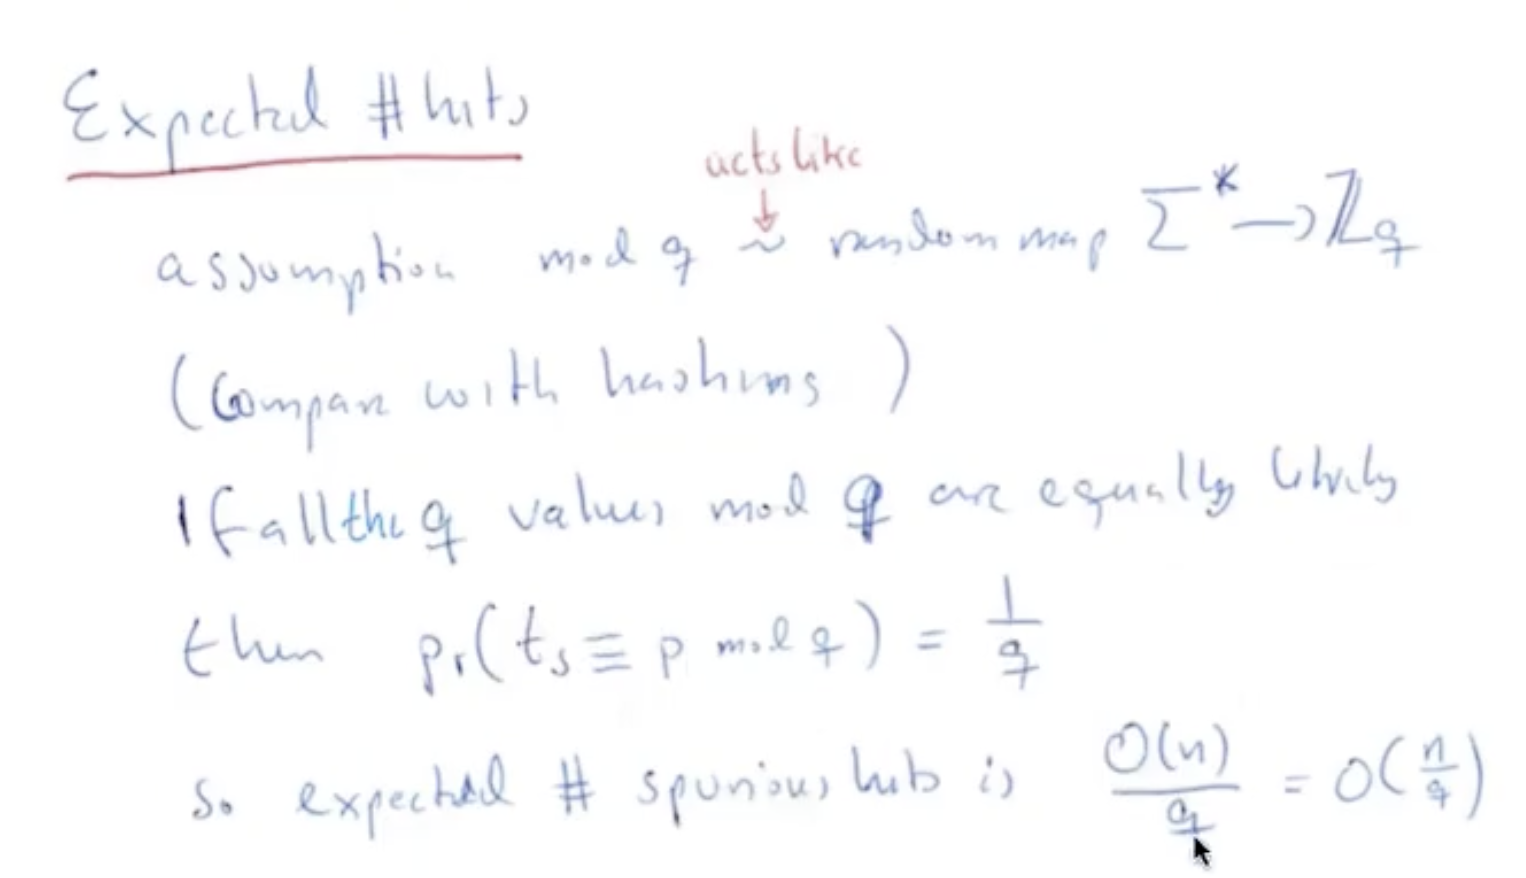 Expected # hits
acts like
assumption mod q ~ random map Σ* → ℤq
(Compare with hashing)
If all the q values mod q are equally likely
then pr(ts ≡ p mod q) = 1/q
so expected # spurious hits is O(n)/q = O(n/q)